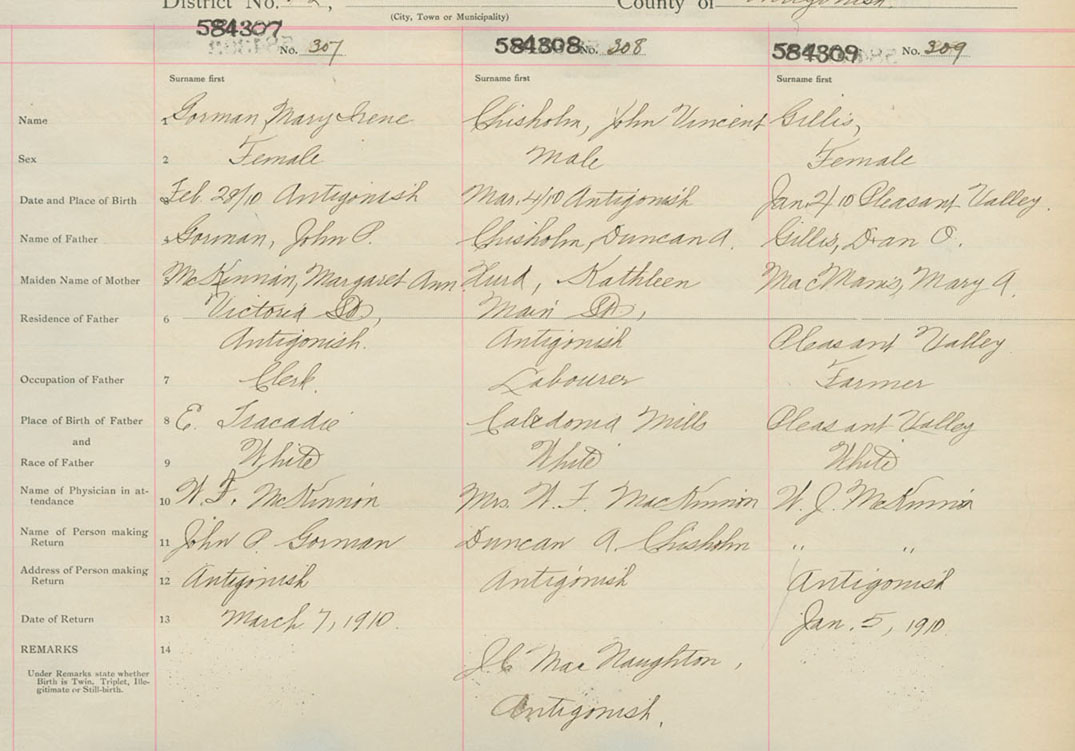 District No. 2, County of Antigonish
(City, Town or Municipality)
584307 No. 307 584308 No. 308 584309 No. 309
Surname first Surname first Surname first
Name 1 Gorman, Mary Irene Chisholm, John Vincent Gillis,
Sex 2 Female Male Female
Date and Place of Birth 3 Feb. 28/10 Antigonish Mar. 4/10 Antigonish Jan. 2/10 Pleasant Valley.
Name of Father 4 Gorman, John P. Chisholm, Duncan A. Gillis, Dan O.
Maiden Name of Mother 5 McKinnan, Margaret Ann Hurd, Kathleen Mary A.
Victoria St, Main St,
Residence of Father 6
Antigonish. Antigonish Pleasant Valley
Occupation of Father 7 Clerk Labourer Farmer
Place of Birth of Father 8 E. Tracadie Caledonia Mills Pleasant Valley
and
Race of Father 9 White White White
Name of Physician in at-
tendance 10 W. F. McKinnon Mrs. W. F. MacKinnon W. J. McKinnon
Name of Person making
Return 11 John P. Gorman Duncan A. Chisholm " "
Address of Person making
Return 12 Antigonish Antigonish Antigonish
Date of Return 13 March 7, 1910. Jan. 5, 1910
REMARKS 14
J C MacNaughton,
Under Remarks state whether
Birth is Twin, Triplet, Ille-
gitimate or Still-birth.
Antigonish.